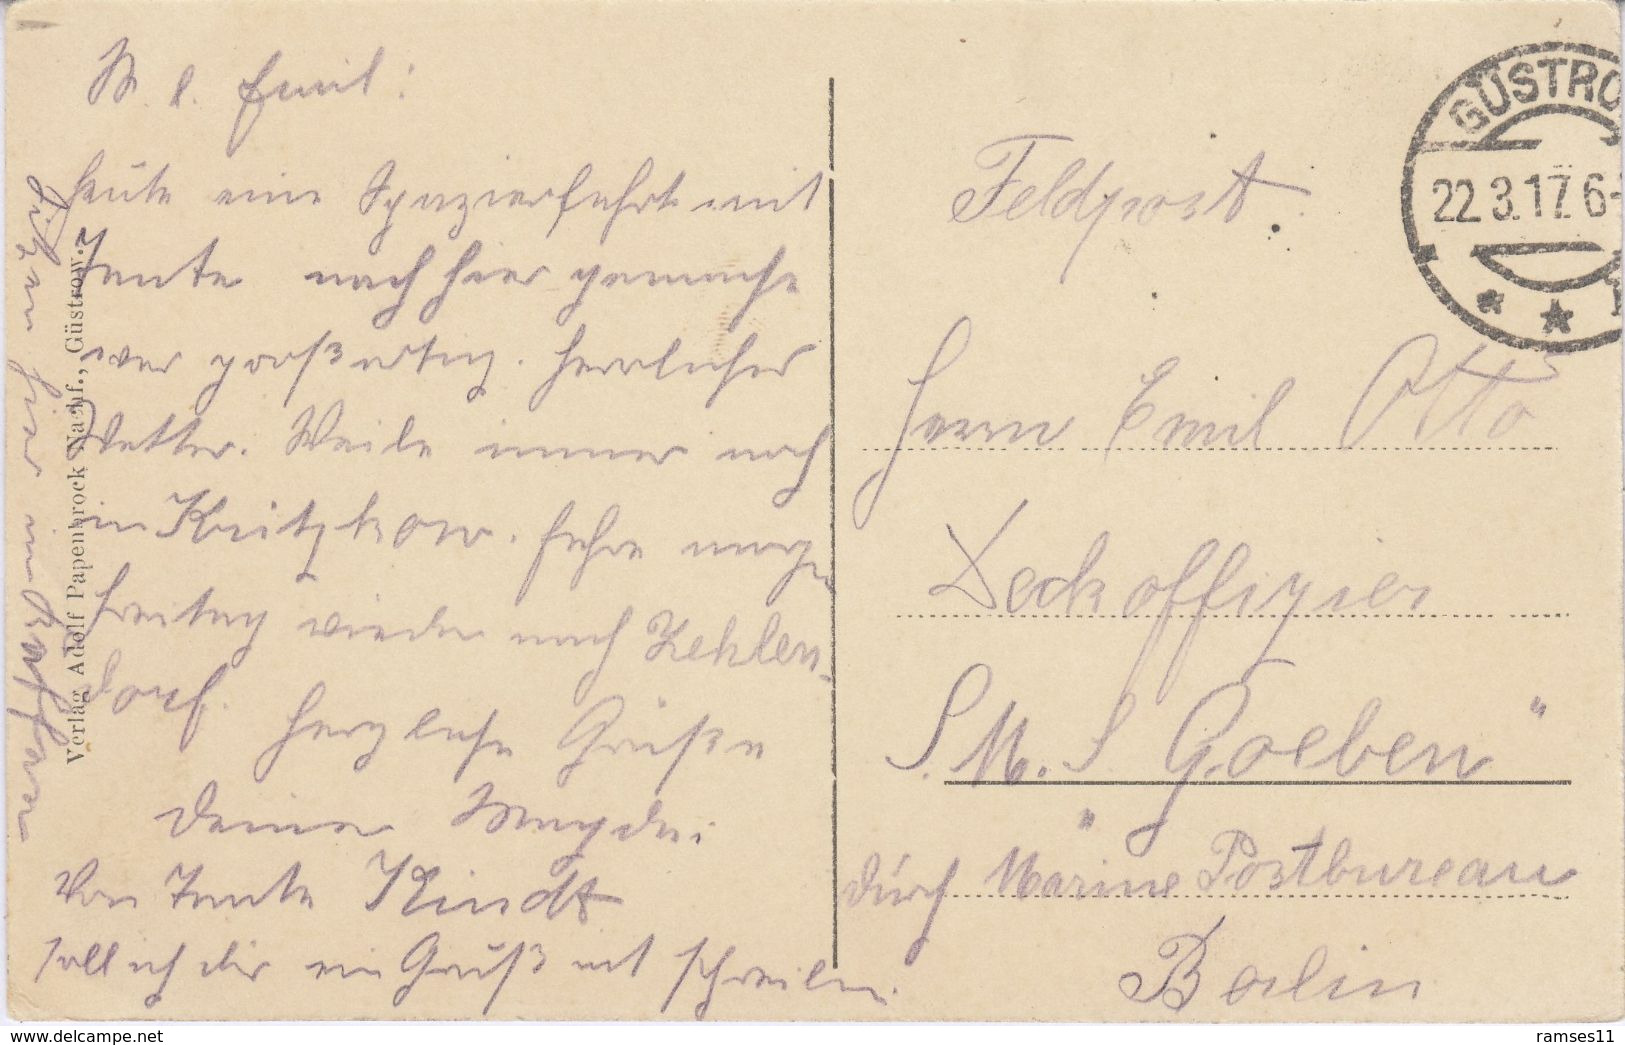 M. l. Emil!
Heute eine Spazierfahrt mit
Tante nach hier gemacht
war großartig. Herrliches
Wetter. Weile immer noch
in Kritzkow. Fahre morgen
Freitag wieder nach Zehlen-
dorf. Herzliche Grüße
Deine
Von Tante Kindt
soll ich dir ein Gruß mit schreiben.
Sitzen hier im
Verlag Adolf Papenbrock Nachf., Güstrow.
Feldpost.
GÜSTRO
22.3.17.6-
Herrn Emil Otto
Deckoffizier
S.M.S. "Goeben"
durch Marine Postbureau
Berlin
delcampe.net
ramses11